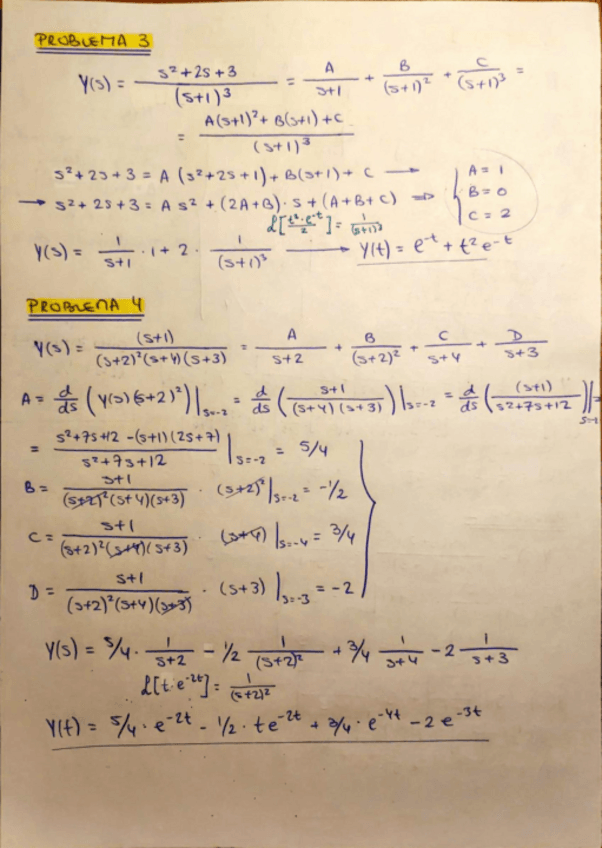 PROBLEMA 3
Y(s) = (s²+2s+3)/(s+1)³ = A/(s+1) + B/(s+1)² + C/(s+1)³ =
= (A(s+1)² + B(s+1) + C)/(s+1)³
s²+2s+3 = A (s²+2s+1) + B(s+1) + C → { A = 1
→ s²+2s+3 = A s² + (2A+B)·s + (A+B+C) ⇒ B = 0
C = 2
ℒ[t²·e^-t/2] = 1/(s+1)³
Y(s) = 1/(s+1) · 1 + 2 · 1/(s+1)³ → Y(t) = e^-t + t² e^-t
PROBLEMA 4
Y(s) = (s+1)/((s+2)²(s+4)(s+3)) = A/(s+2) + B/(s+2)² + C/(s+4) + D/(s+3)
A = d/ds (Y(s)(s+2)²)|s=-2 = d/ds ((s+1)/((s+4)(s+3)))|s=-2 = d/ds ((s+1)/(s²+7s+12))|s=-2 =
= (s²+7s+12 -(s+1)(2s+7))/(s²+7s+12) |s=-2 = 5/4
B = (s+1)/((s+2)²(s+4)(s+3)) · (s+2)²|s=-2 = -1/2
C = (s+1)/((s+2)²(s+4)(s+3)) · (s+4)|s=-4 = 3/4
D = (s+1)/((s+2)²(s+4)(s+3)) · (s+3)|s=-3 = -2
Y(s) = 5/4 · 1/(s+2) - 1/2 1/(s+2)² + 3/4 1/(s+4) - 2 1/(s+3)
ℒ[t·e^-2t] = 1/(s+2)²
Y(t) = 5/4 · e^-2t - 1/2 · te^-2t + 3/4 · e^-4t - 2 e^-3t